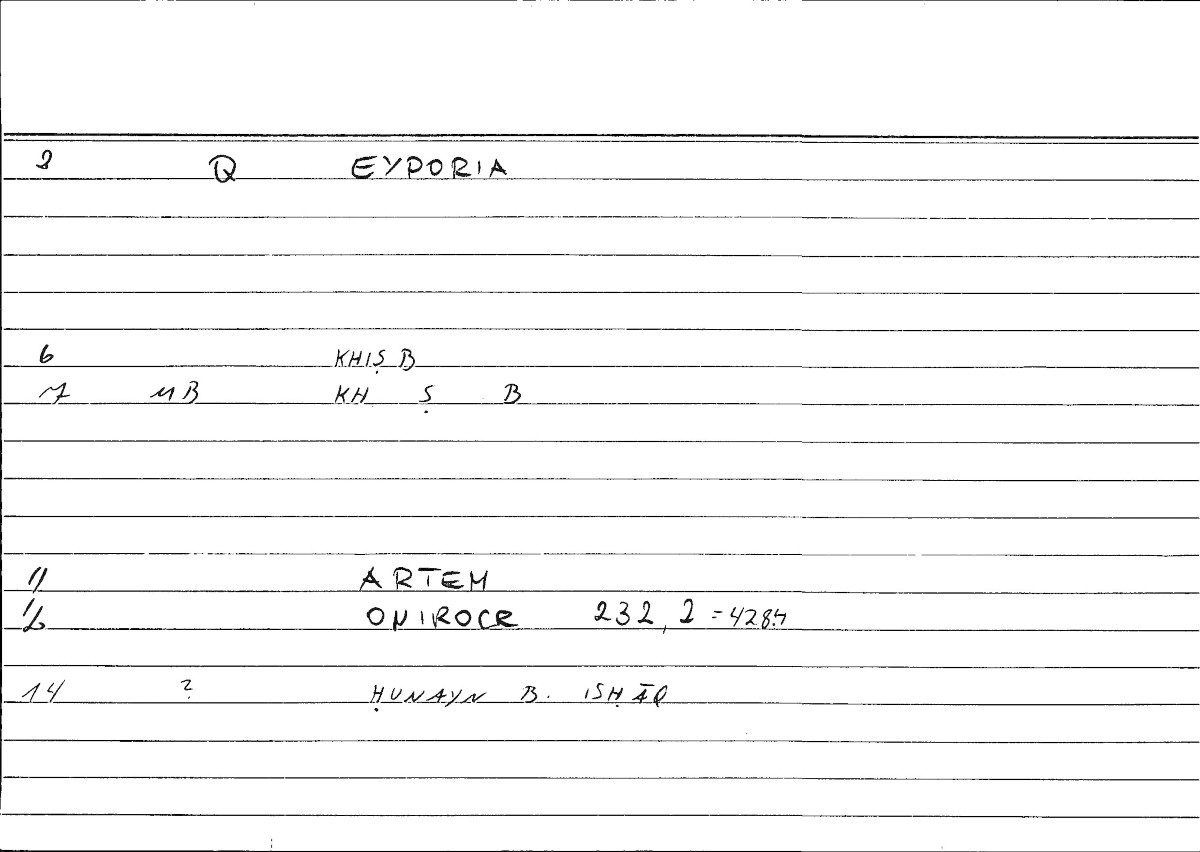 3 Q EYPORIA
6 KHIṢ B
7 MB KH Ṣ B
11 ARTEM
12 ONIROCR 232, 2 = 428.4
14 ? ḤUNAYN B. ISḤĀQ